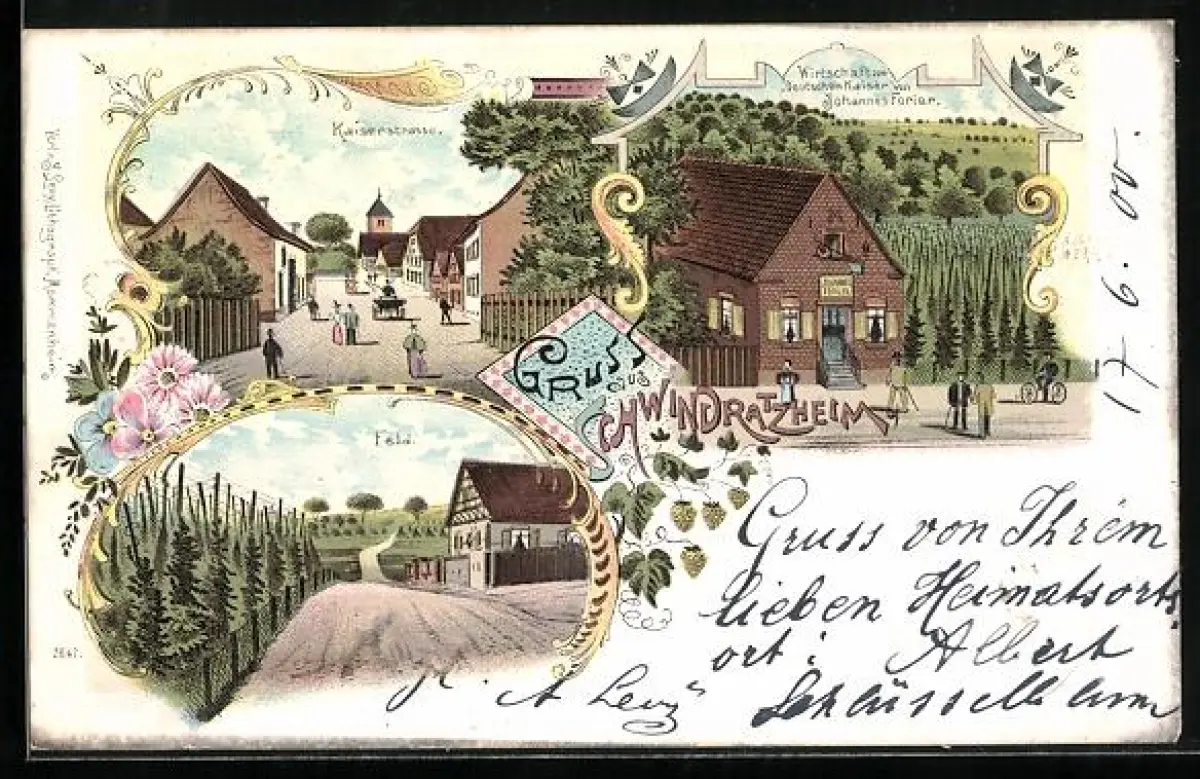 Kaiserstrasse.
Wirtschaft zum
Deutschen Kaiser von
Johannes Forler.
GRUSS
aus
SCHWINDRATZHEIM
Feld.
2647.
17. 6. 00.
Gruss von Ihrem
lieben Heimatsorts
ort: Albert
A Levy Schlüssell